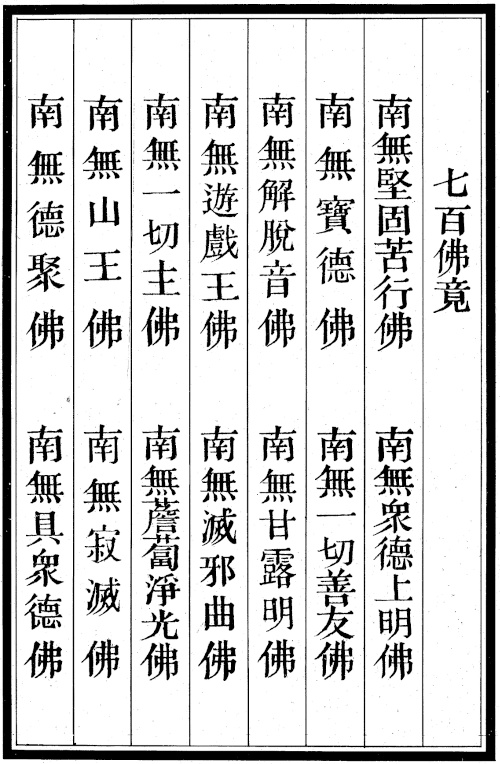 七百佛竟
南無堅固苦行佛 南無衆德上明佛
南無寶德佛 南無一切善友佛
南無解脫音佛 南無甘露明佛
南無遊戲王佛 南無滅邪曲佛
南無一切主佛 南無薝蔔淨光佛
南無山王佛 南無寂滅佛
南無德聚佛 南無具衆德佛